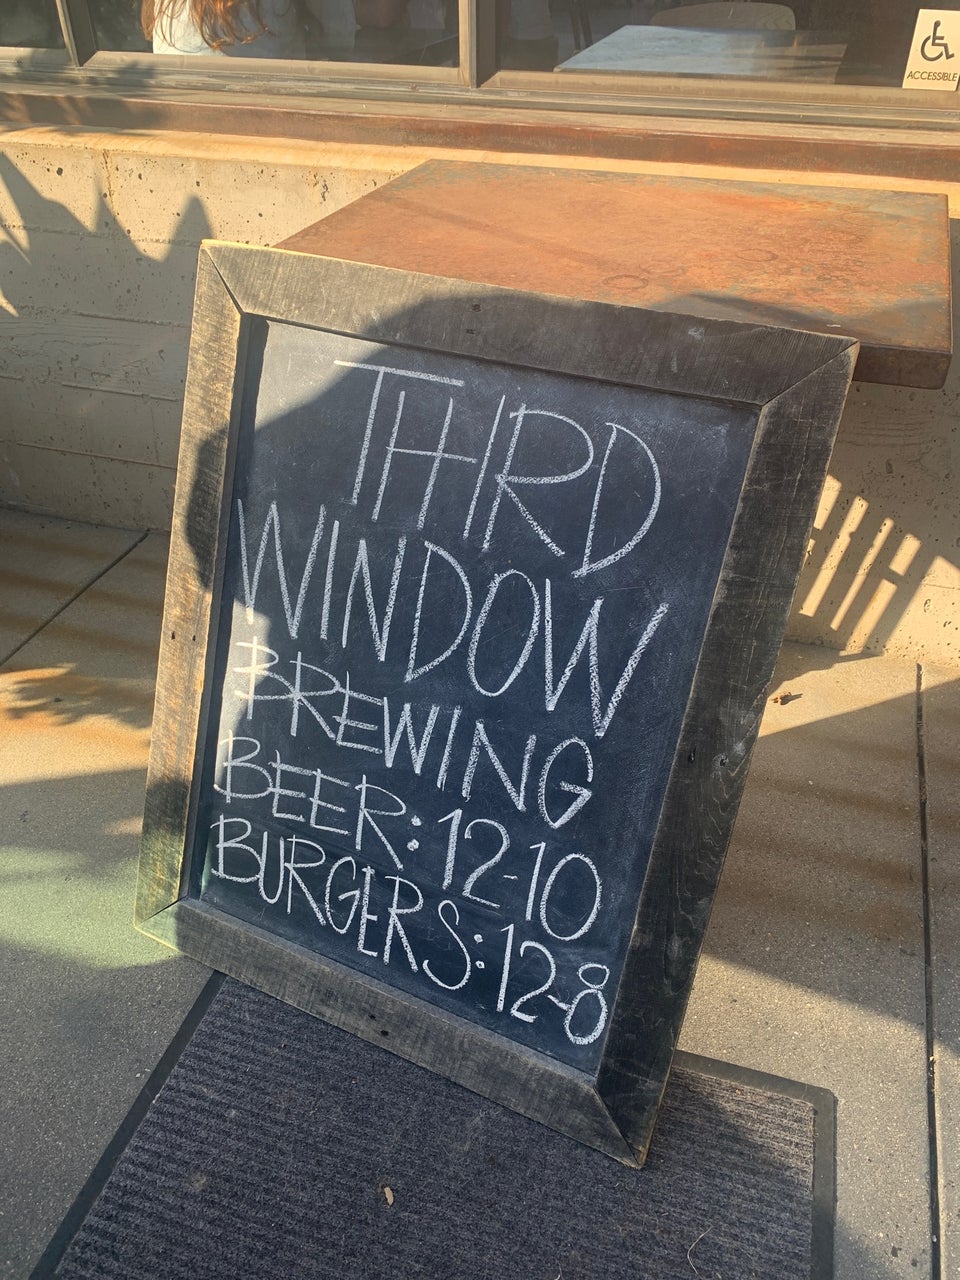 ACCESSIBLE
THIRD
WINDOW
BREWING
BEER: 12-10
BURGERS: 12-8